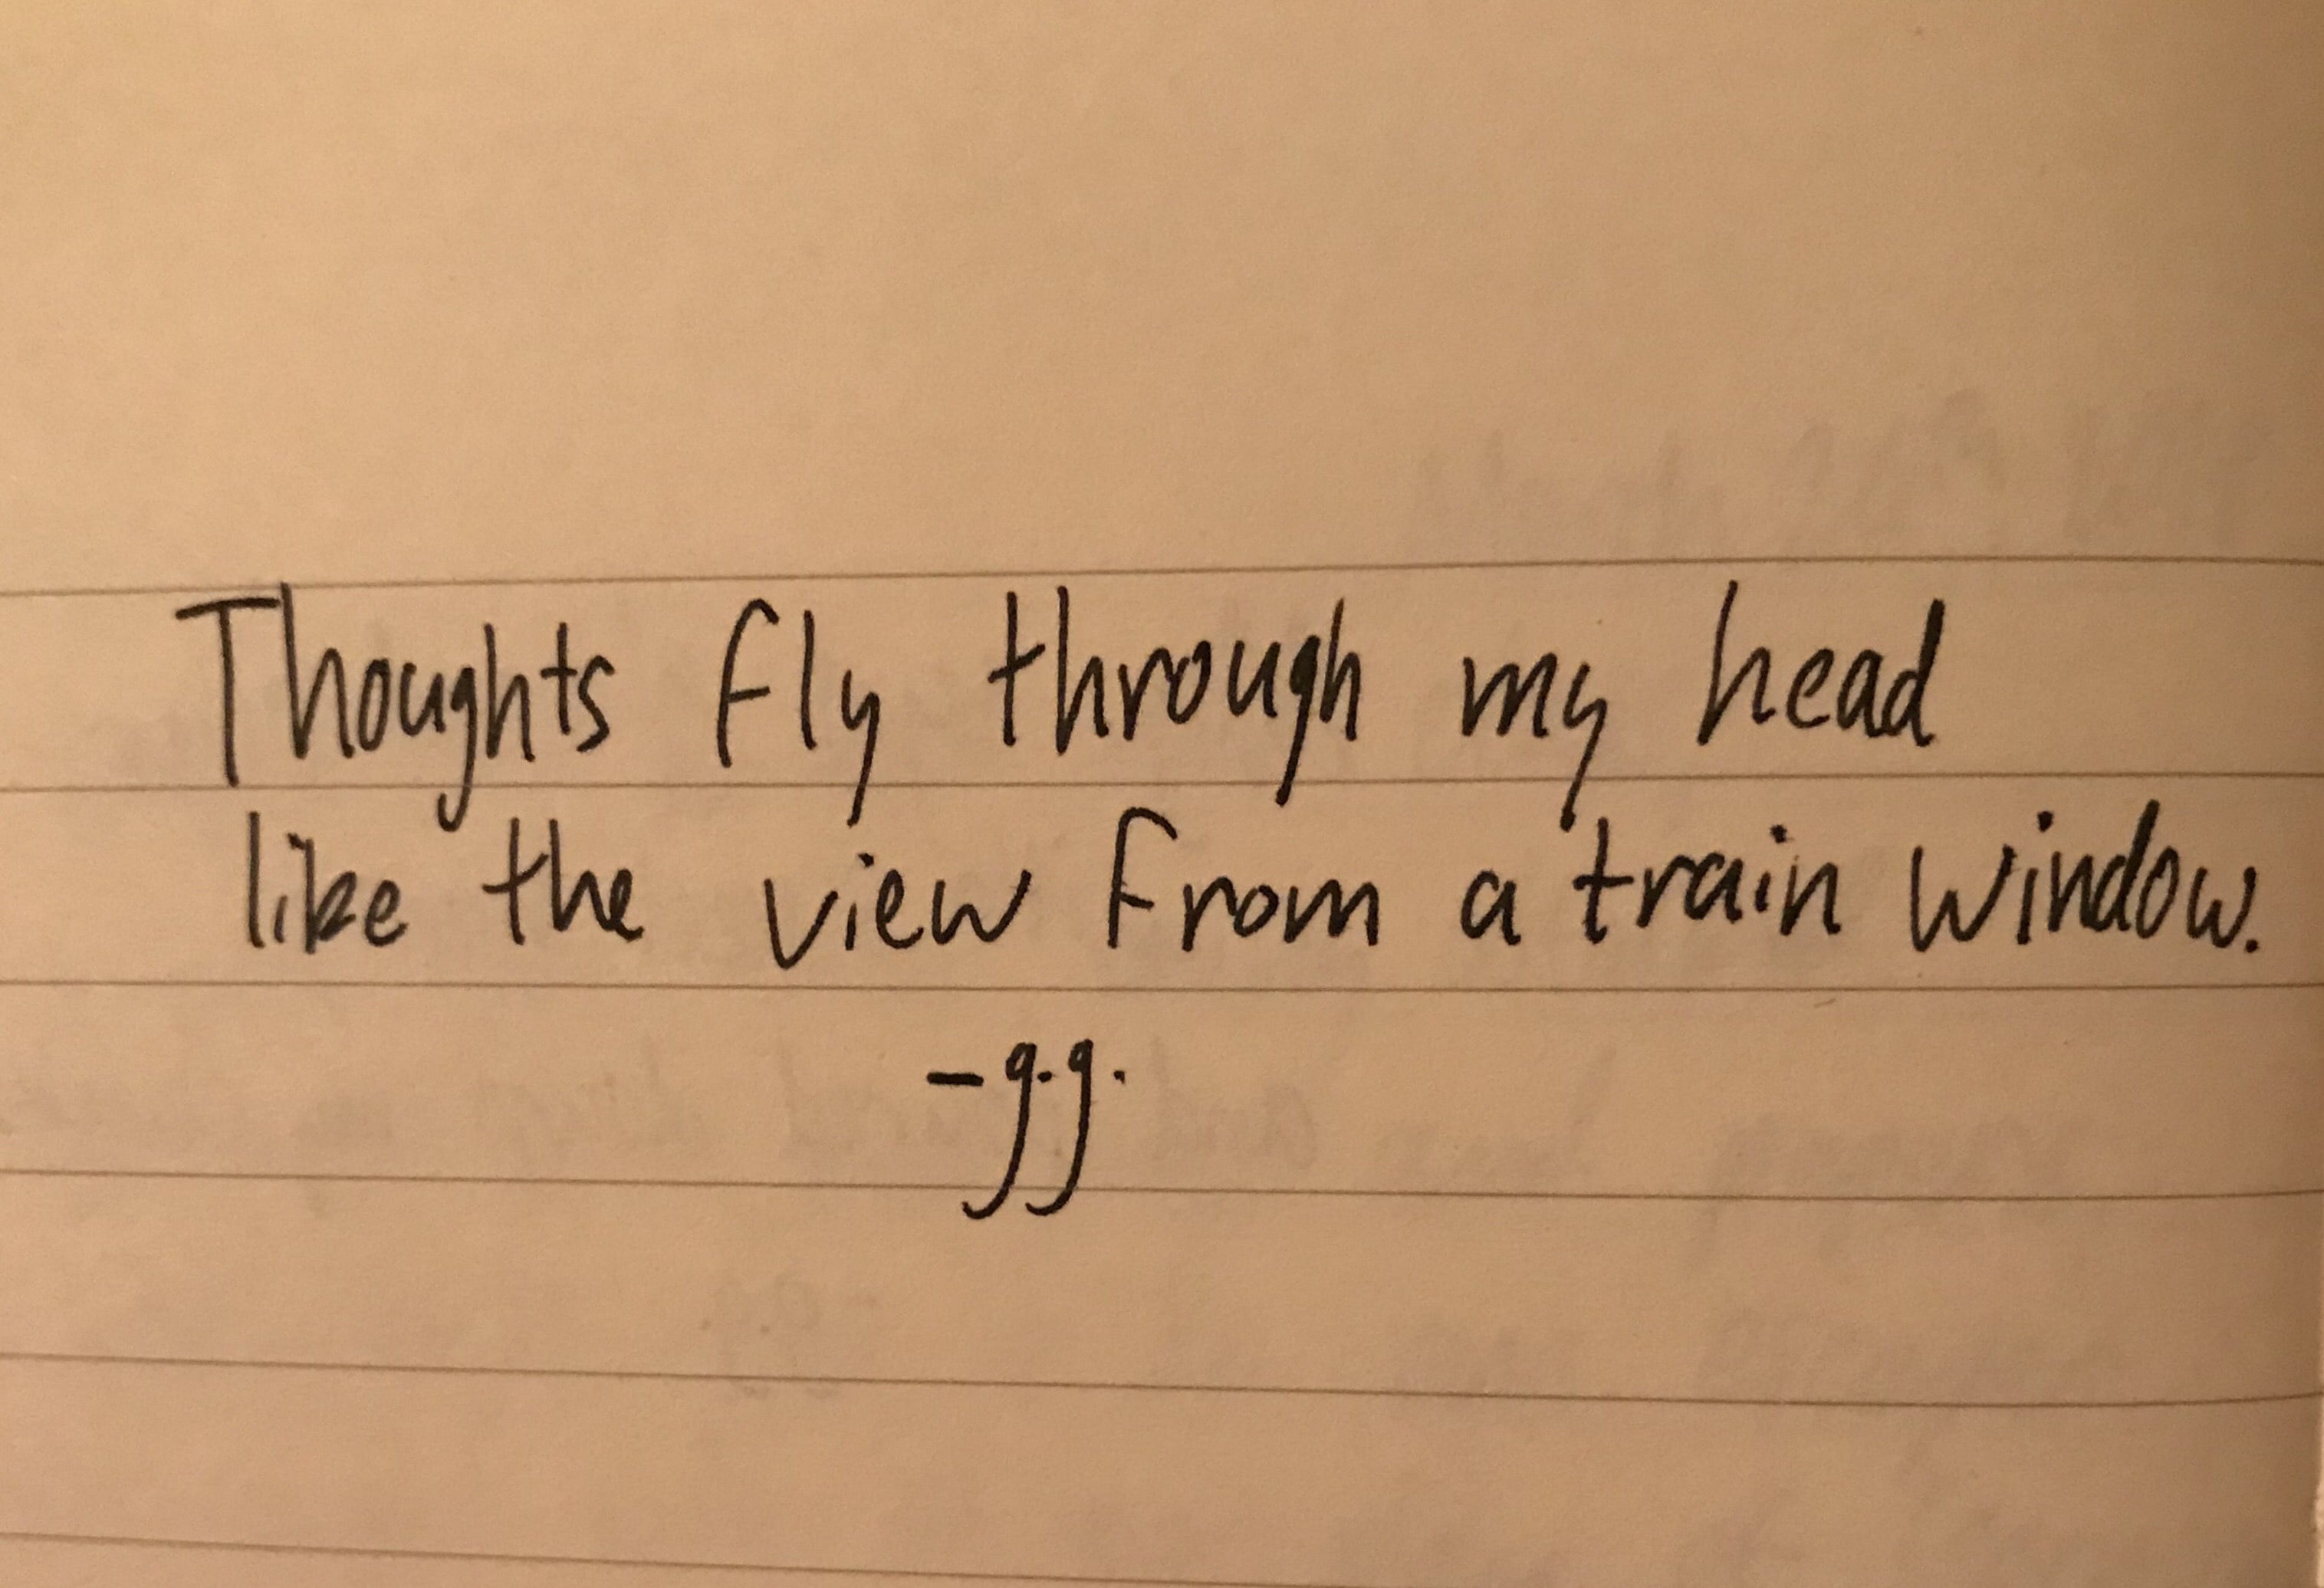 Thoughts fly through my head
like the view from a train window.
-g.g.